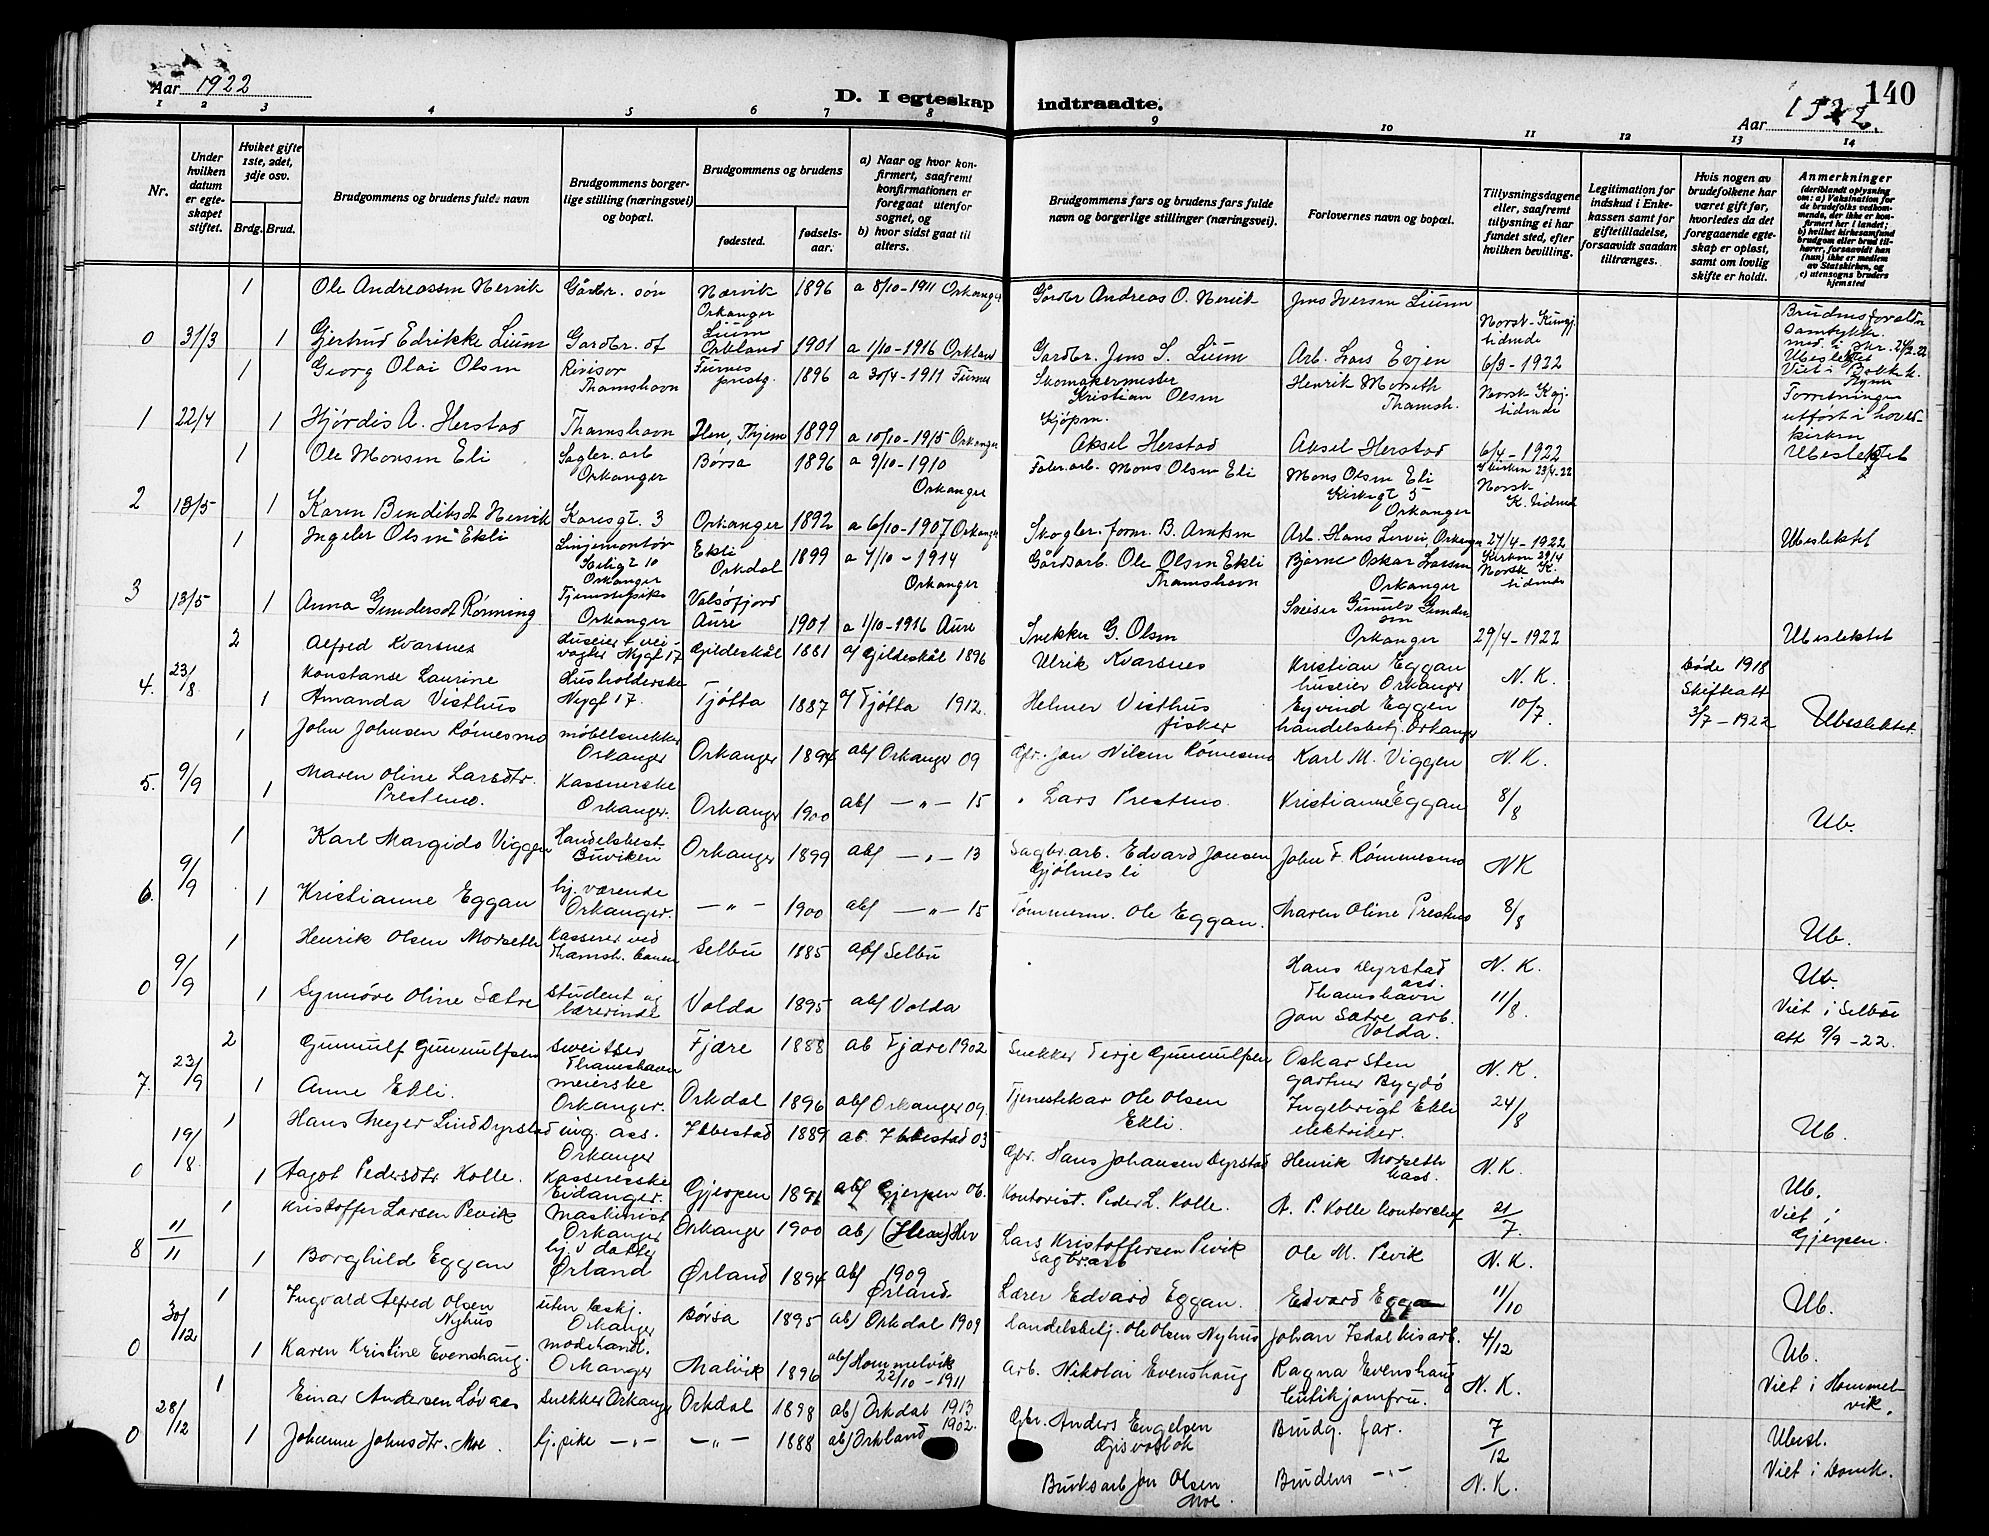 Aar 1922
D. I egteskap indtraadte.
140
Aar 1922.
1 2 3 4 5 6 7 8 9 10 11 12 13 14
Nr.
Under hvilken datum er egteskapet stiftet.
Hviket gifte 1ste, 2det, 3dje osv.
Brdg. Brud.
Brudgommens og brudens fulde navn
Brudgommens borgerlige stilling (næringsvei) og bopæl.
Brudgommens og brudens
fødested.
fødselsaar.
a) Naar og hvor konfirmert, saafremt konfirmationen er foregaat utenfor sognet, og
b) hvor sidst gaat til alters.
Brudgommens fars og brudens fars fulde navn og borgerlige stillinger (næringsvei).
Forlovernes navn og bopæl.
Tillysningsdagene eller, saafremt tillysning ei har fundet sted, efter hvilken bevilling.
Legitimation for indskud i Enkekassen samt for giftetilladelse, forsaavidt saadan tiltrænges.
Hvis nogen av brudefolkene har været gift før, hvorledes da det foregaaende egteskap er opløst, samt om lovlig skifte er holdt.
Anmerkninger
(deriblandt oplysning om: a) Vaksination for de brudefolks vedkommende, der ikke er konfirmert her i landet; b) hvilket kirkesamfund brudgom eller brud tilhører, forsaavidt han (hun) ikke er medlem av Statskirken, og c) utensogns bruders hjemsted
1 Ole Andreassen Nervik Gårdbr. søn Nærvik Orkanger 1896 a 8/10-1911 Orkanger Gårdbr Andreas O. Nervik Jens Iversen Lium Norsk Kungj. tidende
0 31/3 1 Gjertrud Edrikke Lium Gardbr. dt Lium Orkland 1901 a 1/10-1916 Orkland Gardbr. Jens S. Lium Arb. Lars Evjen 6/3-1922 Ubeslektet
1 Georg Olai Olsen Revisor Thamshavn Furnes prestg. 1896 a 30/4-1911 Furnes Skomakermester Kristian Olsen Henrik Morseth Thamsh. Norsk Kgj. tidende
1 22/4 1 Hjørdis A. Herstad Thamshavn 1899 a 10/10-1915 Orkanger Kjøpm. Aksel Herstad Aksel Herstad 6/4-1922 Forretningen utført i hovedkirken Ubeslektet
1 Ole Monsen Eli Sagbr. arb Orkanger Børsa 1896 a 9/10-1910 Orkanger Fabr. arb. Mons Olsen Eli Mons Olsen Eli Kirkegt 5 Orkanger Kirken 23/4-22 Norsk K. tidende
2 13/5 1 Karen Bendiksdt Nervik Karesgt. 3 Orkanger 1892 a 6/10-1907 Orkanger Skogbr. form. B. Arntsen Arb. Hans Lervei, Orkanger 27/4-1922 Ubeslektet
1 Ingebr Olsen Ekli Linjemontør Orkanger Ekli Orkdal 1899 a 4/10-1914 Orkanger Gårdsarb. Ole Olsen Ekli Thamshavn Bjarne Oskar Larsen Orkanger Kirken 29/4 Norsk K. tidende
3 13/5 1 Anna Gundersdt Rønning Tjenestepike Orkanger Valsøfjord Aure 1901 a 1/10-1916 Aure Snekker G. Olsen Sveiser Gunulv Gundersen Orkanger 29/4-1922 Ubeslektet
2 Alfred Kvarsnes Huseier & veivogter Nygt 17 Gildeskål 1881 a/ Gildeskål 1896 Ulrik Kvarsnes Kristian Eggan huseier Orkanger N. K. Døde 1918
4. 23/8 1 Konstanse Laurine Amanda Visthus Husholderske Nygt 17. Tjøtta 1887 a/ Tjøtta 1912. Helmer Visthus fisker Eyvind Eggen handelsbetj. Orkanger 10/7. Skifteatt 3/7-1922 Ubeslektet.
1 John Johnsen Rømesmo møbelsnekker Orkanger Orkanger 1894 ab/ Orkanger 09 Gbr. Jon Nilsen Rømesmo Karl M. Viggen N. K.
5. 9/9 1 Maren Oline Larsdtr. Prestmo. Kassererske Orkanger. Orkanger 1900 ab/ —"— 15 " Lars Prestmo. Kristianne Eggan 8/8 Ub.
1 Karl Margido Viggen Handelsbest. Buviken Orkanger 1899 ab/ —"— 13 Sagbr. arb. Edvard Jonsen Gjølmesli John J. Rømmesmo N K
6. 9/9 1 Kristianne Eggan hj. værende Orkanger. —"— 1900 ab/ —"— 15 Tømmerm. Ole Eggan. Maren Oline Prestmo 8/8 Ub.
1 Henrik Olsen Morseth Kasserer ved Thamsh. banen Selbu 1885 ab/ Selbu Hans Dyrstad ass. Thamshavn N. K. Ub.
0 9/9 1 Synnøve Oline Sætre student og lærerinde Volda 1895 ab/ Volda Jon Sætre arb. Volda. 11/8. Viet i Selbu att 9/9-22.
2 Gunnulf Gunnulfsen sveitser Thamshavn Fjære 1888 ab Fjære 1902 Snekker Terje Gunnulfsen Oskar Sten gartner Bygdø N. K.
7. 23/9 1 Anne Ekli. meierske Orkanger. Orkdal 1896 ab/ Orkanger 09. Tjenestekar Ole Olsen Ekli. Ingebrigt Ekli elektriker. 24/8 Ub.
1 Hans Meyer Lind Dyrstad ing. ass. Orkanger Ibbestad 1889 ab. Ibbestad 03 Gbr. Hans Johansen Dyrstad Henrik Morseth kass. N. K.
0 19/8. 1 Aagot Pedersdtr Kolle. Kassererske Eidanger. Gjerpen 1891 ab/ Gjerpen 06. Kontorist. Peder L. Kolle. A. P. Kolle kontorchef 21/7. Ub. Viet i Gjerpen.
1 Kristoffer Larsen Pevik Maskinist Orkanger Orkanger 1900 ab/ Lars Kristoffersen Pevik Sagbr. arb Ole M. Pevik N. K.
8 11/11 1 Borghild Eggan hj. v. datter Ørland Ørland 1894 ab/ 1909 Ørland. Lærer Edvard Eggan. Edvard Eggan 11/10 Ub.
1 Ingvald Alfred Olsen Nyhus uten beskj. Orkanger Børsa 1895 ab/ Orkdal 1909 Handelsbetj. Ole Olsen Nyhus Johan Isdal 4/12 Ub.
0 30/12 1 Karen Kristine Evenshaug. modehandl. Orkanger Malvik 1896 ab/ Hommelvik 22/10-1911 Arb. Nikolai Evenshaug Ragna Evenshaug butikjomfru. N. K. Viet i Hommelvik.
1 Einar Andersen Løvaas Snekker Orkanger Orkdal 1898 ab/ Orkdal 1913 Gbr. Anders Engelsen Brudg. far. 7/12 Ubesl.
0 28/12 1 Johanne Johnsdtr. Moe hj. pike —"— —"— 1888 ab/ Orkland 1902. Bruksarb Jon Olsen Moe. Brudens —"— N. K. Viet i Domk.